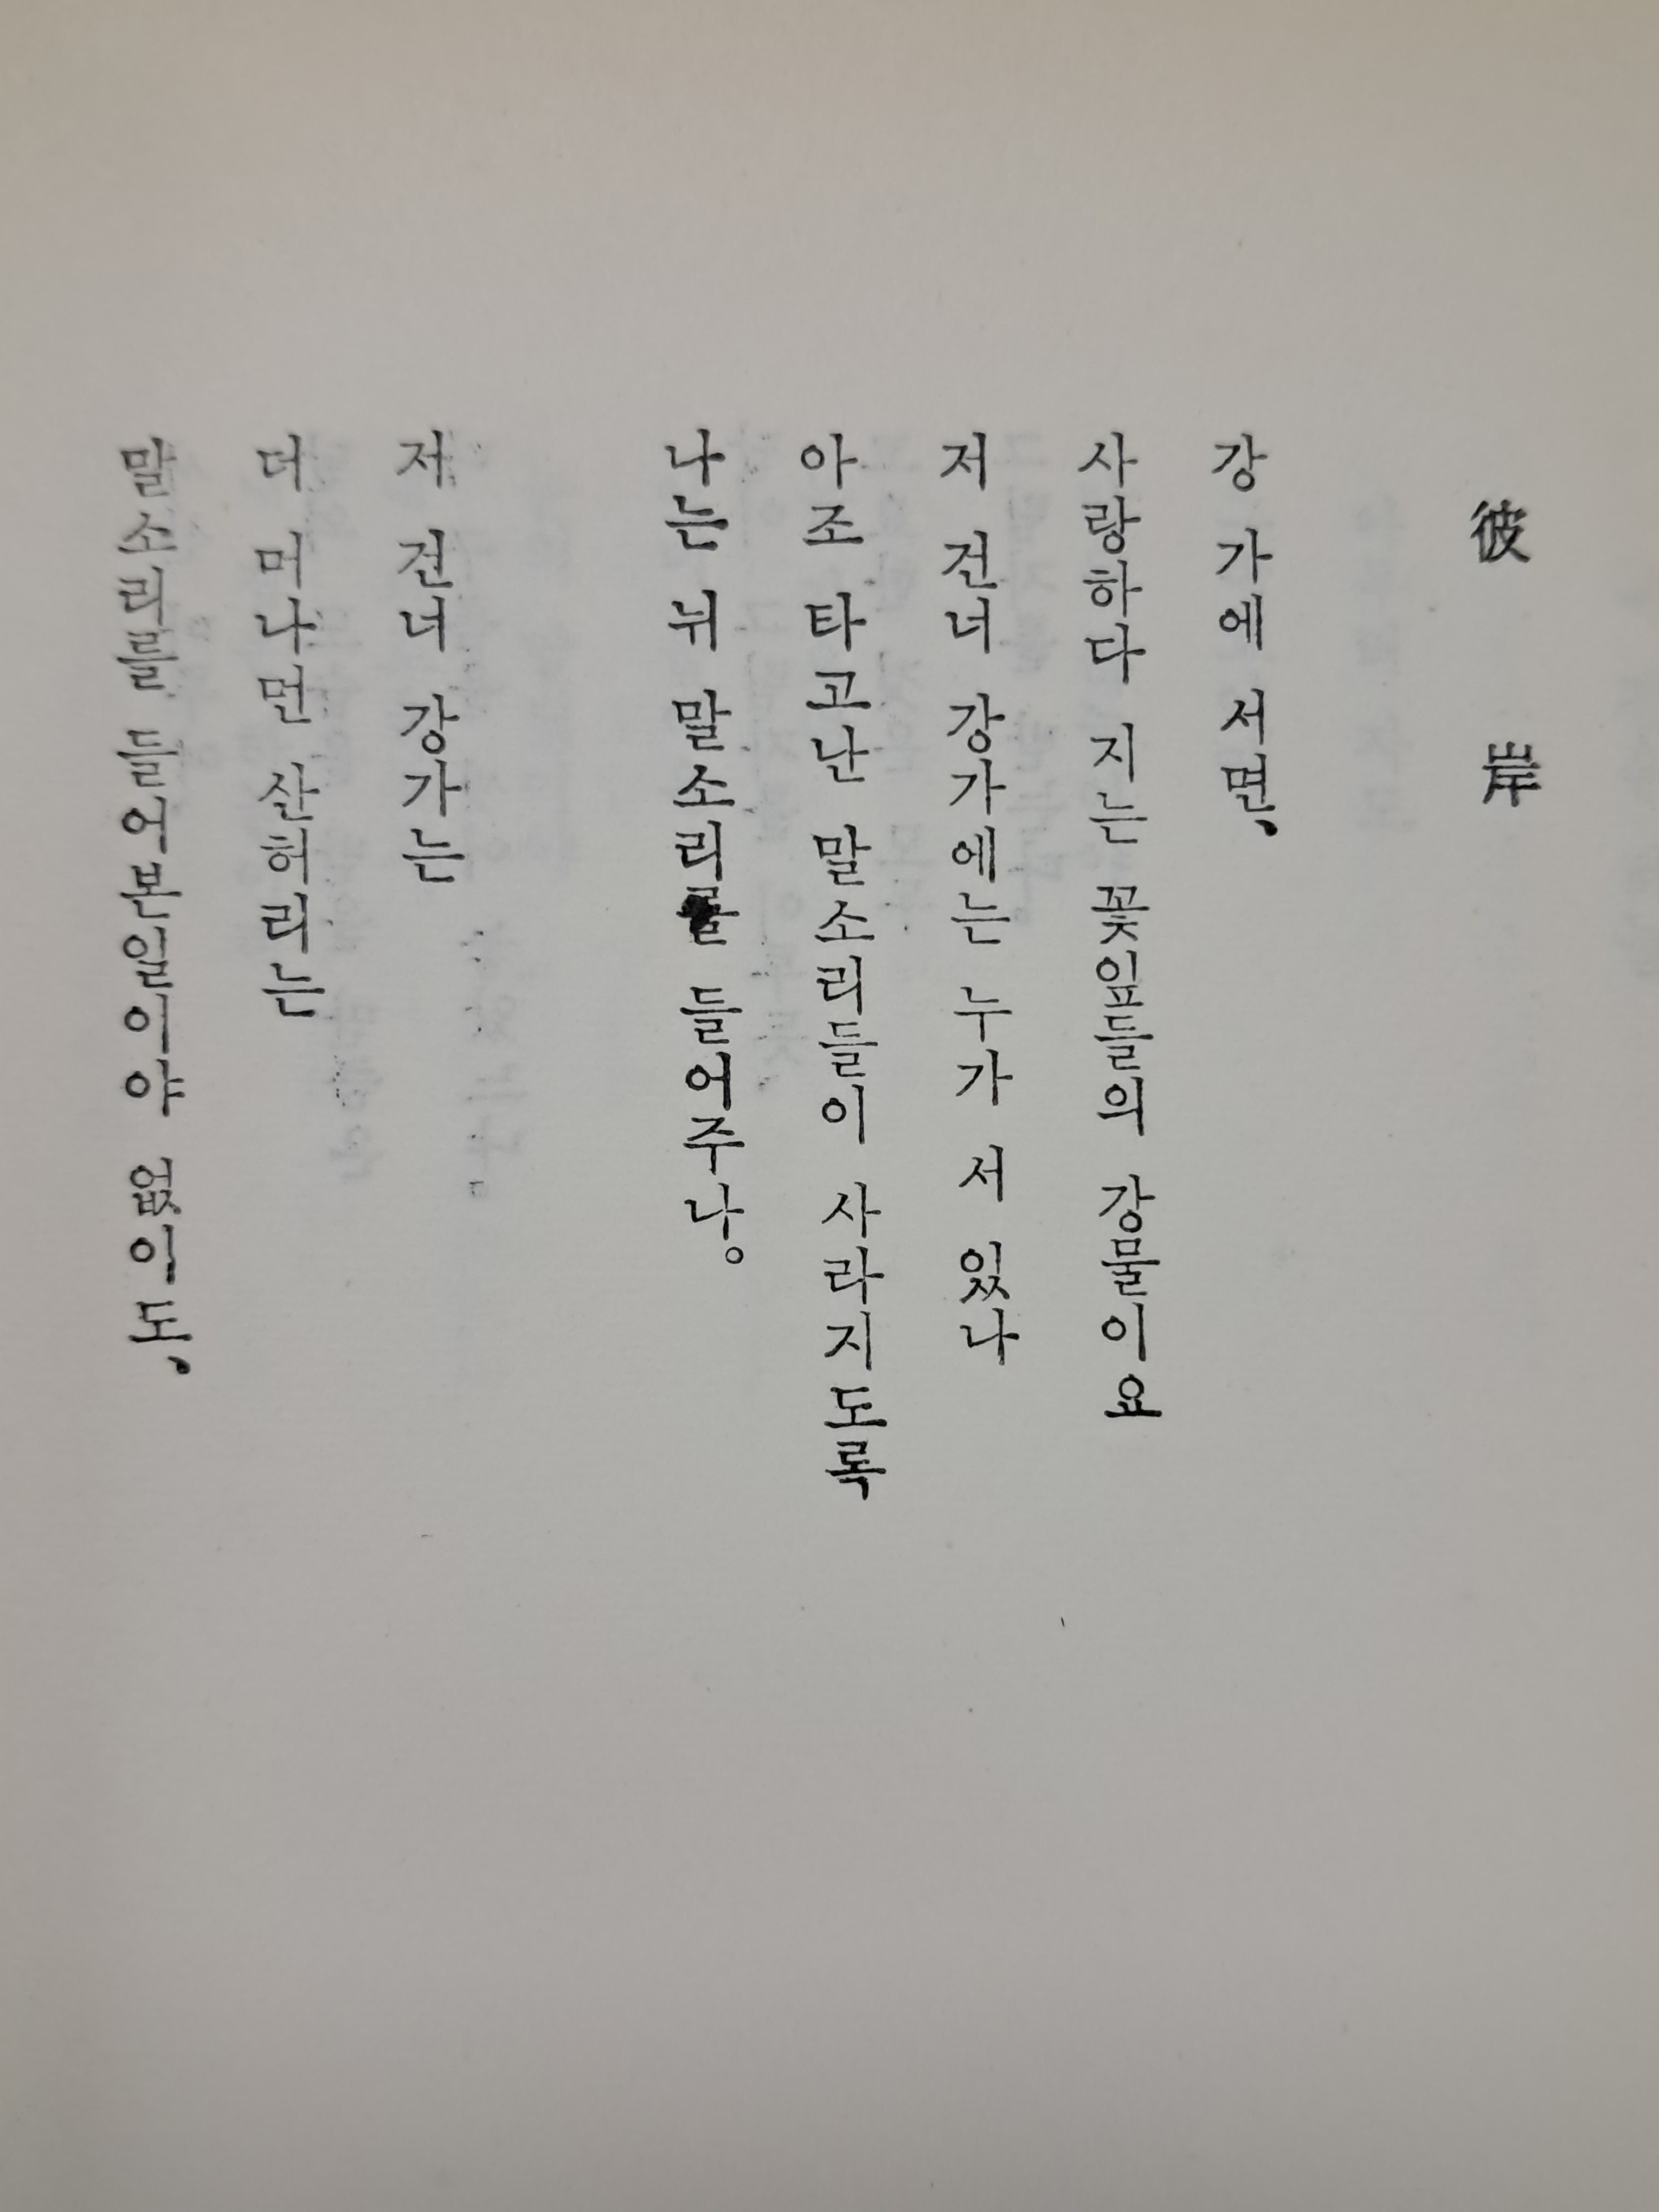 彼岸
강 가에 서면、
사랑하다 지는 꽃잎들의 강물이요
저 건너 강가에는 누가 서 있나
아조 타고난 말소리들이 사라지도록
나는 뉘 말소리를 들어주나。
저 건너 강가는
더 머나먼 산허리는
말소리를 들어본일이야 없이도、